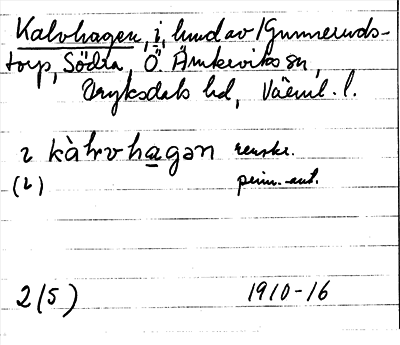 Kalvhagen, i, lund av /Gunneruds-
torp, Södra, Ö. Ämterviks sn,
Fryksdals hd, Värml. l.
2 kàlvhagən renskr.
(2) prim.-ant.
2(5) 1910-16